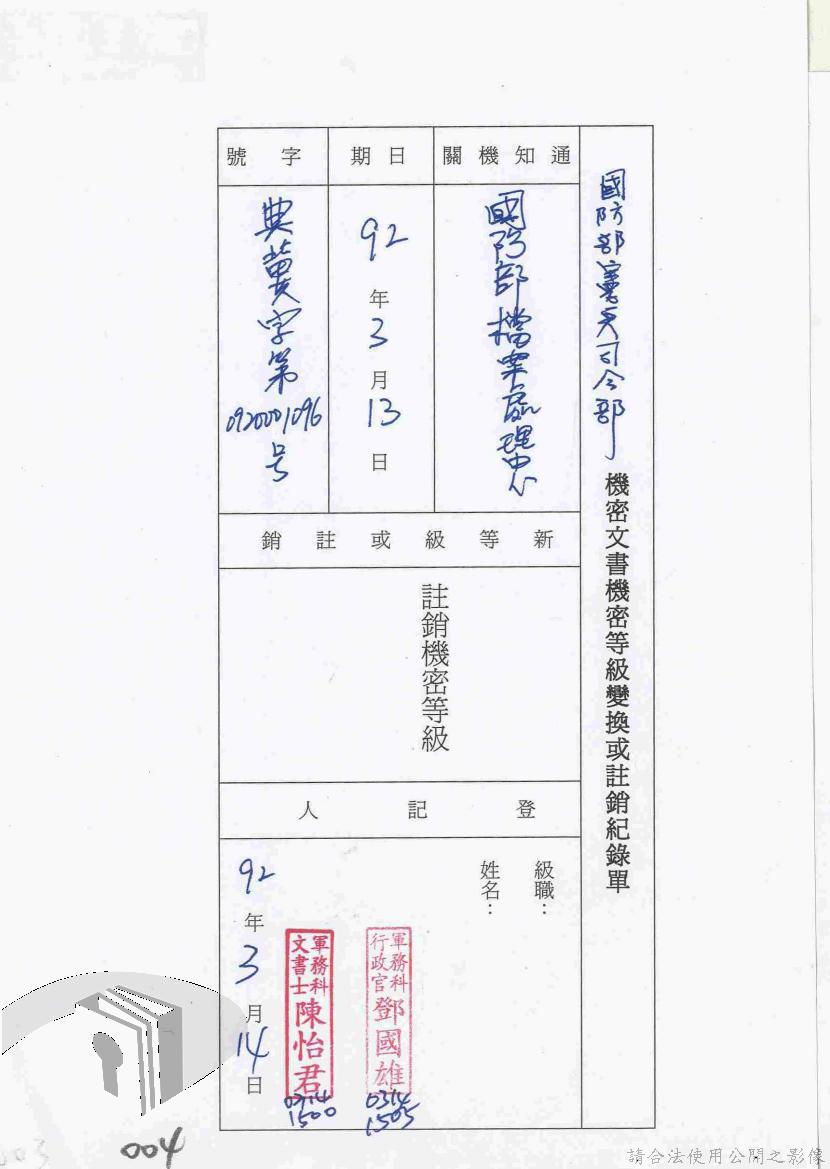 國防部憲兵司令部機密文書機密等級變換或註銷紀錄單
通知機關
國防部檔案處理中心
日期
92年3月13日
字號
典蓂字第0920001096号
新等級或註銷
註銷機密等級
登記人
級職：
姓名：
軍務科
行政官
鄧國雄
0314
1505
軍務科
文書士
陳怡君
0314
1500
92年3月14日
003
004
請合法使用公開之影像